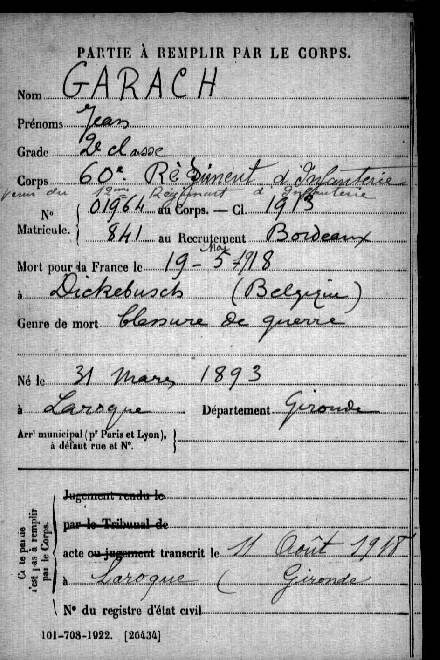 PARTIE À REMPLIR PAR LE CORPS.
Nom GARACH
Prénoms Jean
Grade 2e classe
Corps 60e Régiment d'Infanterie
venu du Régiment d'Infanterie
N° 01964 au Corps. — Cl. 1913
Matricule. 841 au Recrutement Bordeaux
Mai
Mort pour la France le 19 - 5 - 1918
à Dickebusch (Belgique)
Genre de mort blessure de guerre
Né le 31 Mars 1893
à Laroque Département Gironde
Arr^t municipal (p^r Paris et Lyon),
à défaut rue et N°.
Cette partie
n'est pas à remplir
par le Corps.
Jugement rendu le
par le Tribunal de
acte ou jugement transcrit le 11 Août 1918
à Laroque (Gironde
N° du registre d'état civil
101-708-1922. [26434]